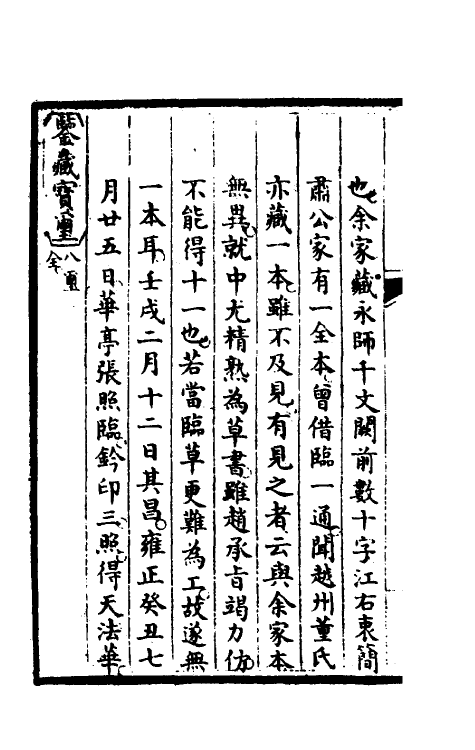 也余家藏永師千文闕前數十字江右袁簡
肅公家有一全本曾借臨一通聞越州董氏
亦藏一本雖不及見有見之者云與余家本
無異就中尤精熟為草書雖趙承旨竭力仿
不能得十一也若當臨草更難為工故遂無
一本耳壬戌二月十二日其昌雍正癸丑七
月廿五日華亭張照臨鈐印三照得天法華
鑒藏寶璽
八璽
全